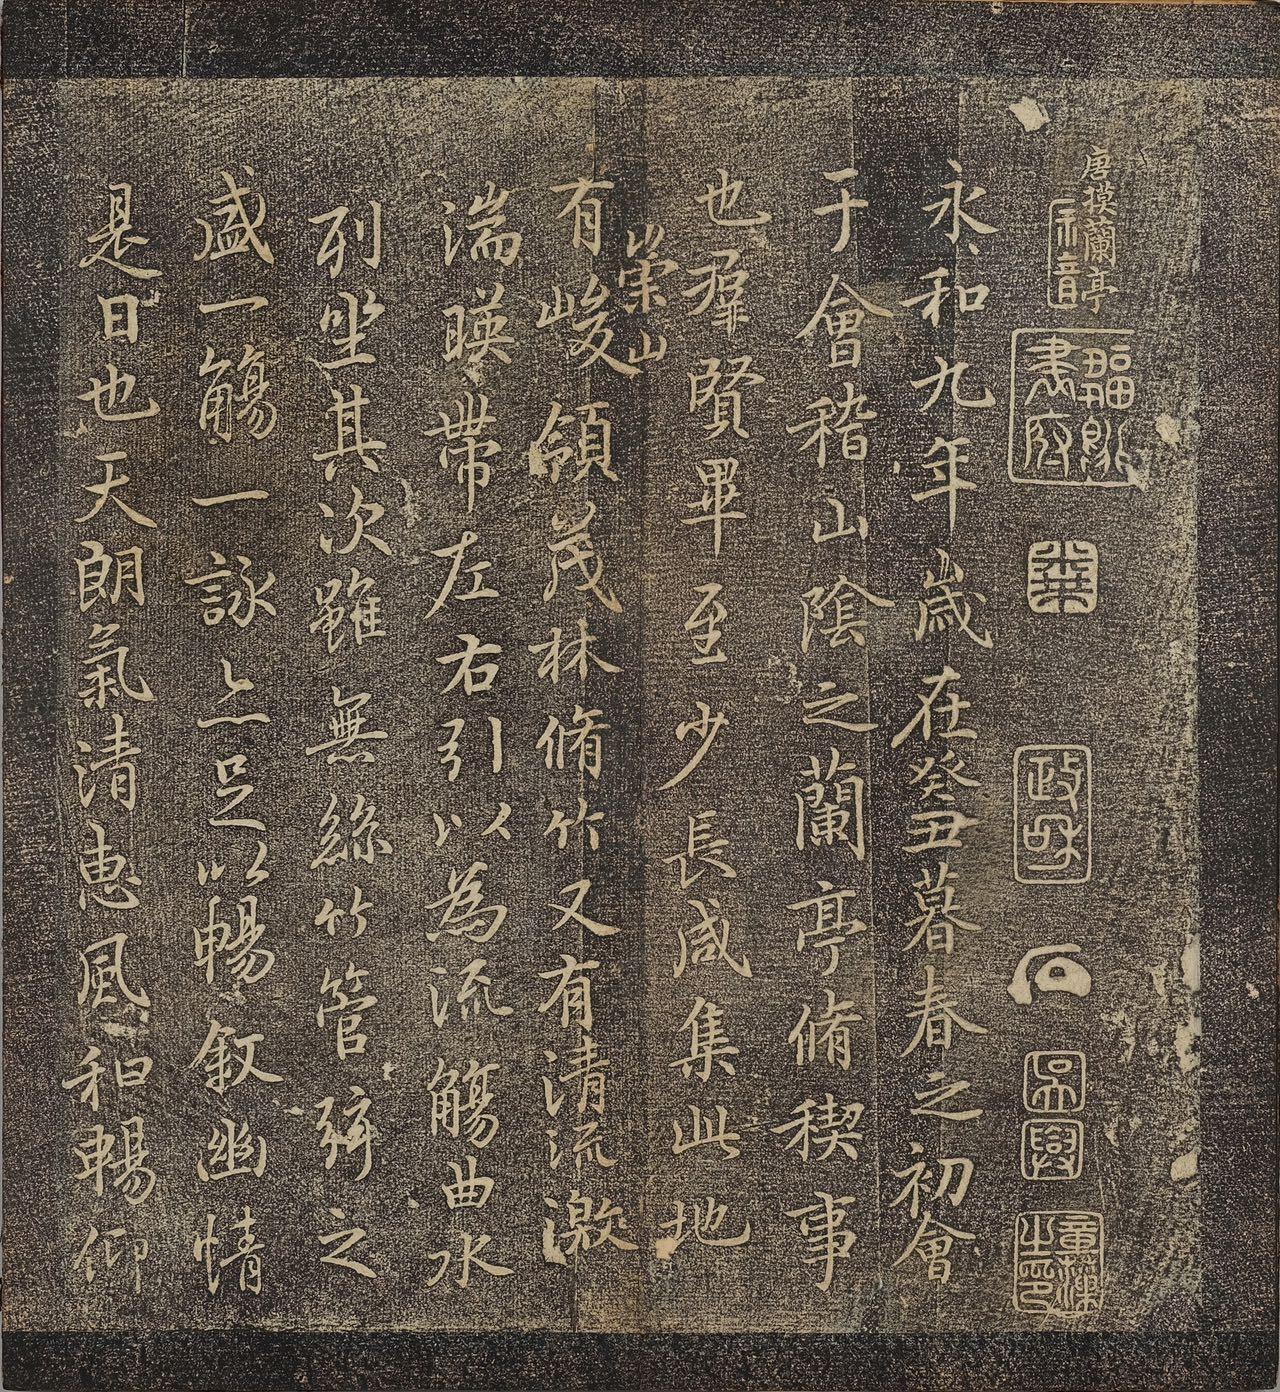 唐摸蘭亭
政和
永和九年歲在癸丑暮春之初會
于會稽山陰之蘭亭脩稧事
也羣賢畢至少長咸集此地
崇山
有峻領茂林脩竹又有清流激
湍暎帶左右引以為流觴曲水
列坐其次雖無絲竹管弦之
盛一觴一詠亦足以暢敘幽情
是日也天朗氣清惠風和暢仰